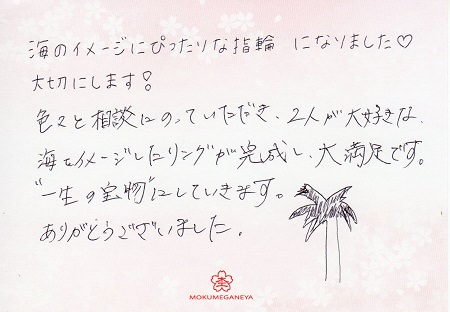 海のイメージにぴったりな指輪 になりました♡
大切にします!
色々と相談にのっていただき、2人が大好きな、
海をイメージしたリングが完成し、大満足です。
"一生の宝物"にしていきます。
ありがとうございました。
MOKUMEGANEYA